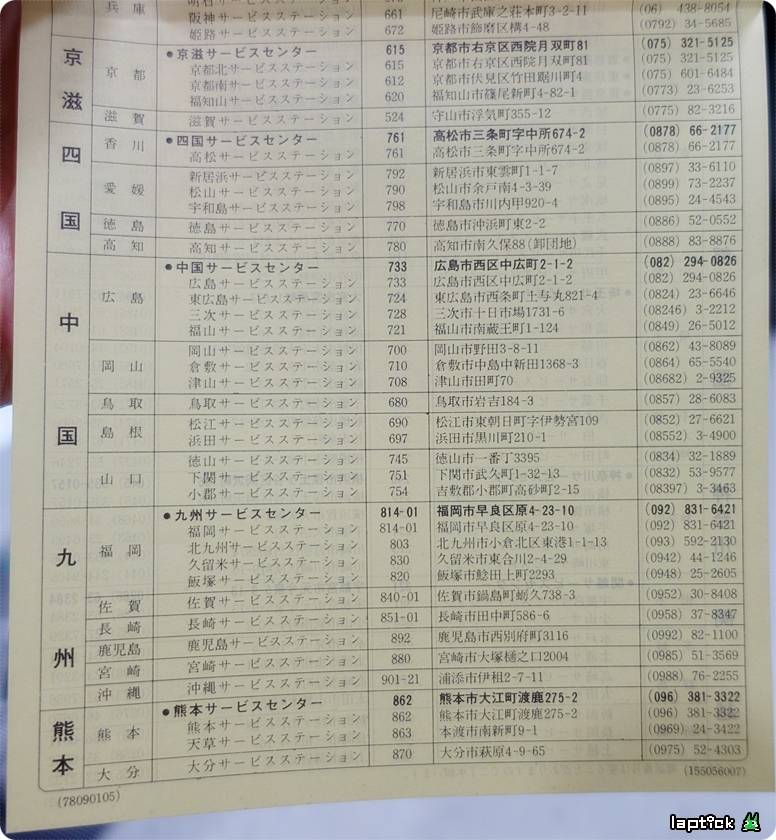 兵庫
阪神サービスステーション 661 尼崎市武庫之荘本町3-2-11 (06) 438-8054
姫路サービスステーション 672 姫路市飾磨区構4-48 (0792) 34-5685
京滋
京都
●京滋サービスセンター 615 京都市右京区西院月双町81 (075) 321-5125
京都北サービスステーション 615 京都市右京区西院月双町81 (075) 321-5125
京都南サービスステーション 612 京都市伏見区竹田踞川町4 (075) 601-6484
福知山サービスステーション 620 福知山市篠尾新町4-82-1 (0773) 23-6253
滋賀 滋賀サービスステーション 524 守山市浮気町355-12 (0775) 82-3216
四国
香川
●四国サービスセンター 761 高松市三条町字中所674-2 (0878) 66-2177
高松サービスステーション 761 高松市三条町字中所674-2 (0878) 66-2177
愛媛
新居浜サービスステーション 792 新居浜市東雲町1-1-7 (0897) 33-6110
松山サービスステーション 790 松山市余戸南4-3-39 (0899) 73-2237
宇和島サービスステーション 798 宇和島市川内甲920-4 (0895) 24-4543
徳島 徳島サービスステーション 770 徳島市沖浜町東2-2 (0886) 52-0552
高知 高知サービスステーション 780 高知市南久保88(卸団地) (0888) 83-8876
中国
広島
●中国サービスセンター 733 広島市西区中広町2-1-2 (082) 294-0826
広島サービスステーション 733 広島市西区中広町2-1-2 (082) 294-0826
東広島サービスステーション 724 東広島市西条町土与丸821-4 (0824) 23-6646
三次サービスステーション 728 三次市十日市場1731-6 (08246) 3-2212
福山サービスステーション 721 福山市南蔵王町1-124 (0849) 26-5012
岡山
岡山サービスステーション 700 岡山市野田3-8-11 (0862) 43-8089
倉敷サービスステーション 710 倉敷市中島中新田1368-3 (0864) 65-5540
津山サービスステーション 708 津山市田町70 (08682) 2-9325
鳥取 鳥取サービスステーション 680 鳥取市岩吉184-3 (0857) 28-6083
島根
松江サービスステーション 690 松江市東朝日町字伊勢宮109 (0852) 27-6621
浜田サービスステーション 697 浜田市黒川町210-1 (08552) 3-4900
山口
徳山サービスステーション 745 徳山市一番丁3395 (0834) 32-1889
下関サービスステーション 751 下関市武久町1-32-13 (0832) 53-9577
小郡サービスステーション 754 吉敷郡小郡町高砂町2-15 (08397) 3-3463
九州
福岡
●九州サービスセンター 814-01 福岡市早良区原4-23-10 (092) 831-6421
福岡サービスステーション 814-01 福岡市早良区原4-23-10 (092) 831-6421
北九州サービスステーション 803 北九州市小倉北区東港1-1-13 (093) 592-2130
久留米サービスステーション 830 久留米市東合川2-4-29 (0942) 44-1246
飯塚サービスステーション 820 飯塚市鯰田上町2293 (0948) 25-2605
佐賀 佐賀サービスステーション 840-01 佐賀市鍋島町蛎久738-3 (0952) 30-8408
長崎 長崎サービスステーション 851-01 長崎市田中町586-6 (0958) 37-8347
鹿児島 鹿児島サービスステーション 892 鹿児島市西別府町3116 (0992) 82-1100
宮崎 宮崎サービスステーション 880 宮崎市大塚樋之口2004 (0985) 51-3569
沖縄 沖縄サービスステーション 901-21 浦添市伊祖2-7-11 (0988) 76-2255
熊本
熊本
●熊本サービスセンター 862 熊本市大江町渡鹿275-2 (096) 381-3322
熊本サービスステーション 862 熊本市大江町渡鹿275-2 (096) 381-3322
天草サービスステーション 863 本渡市南新町9-1 (0969) 24-3422
大分 大分サービスステーション 870 大分市萩原4-9-65 (0975) 52-4303
(78090105)
(155056007)
laptick